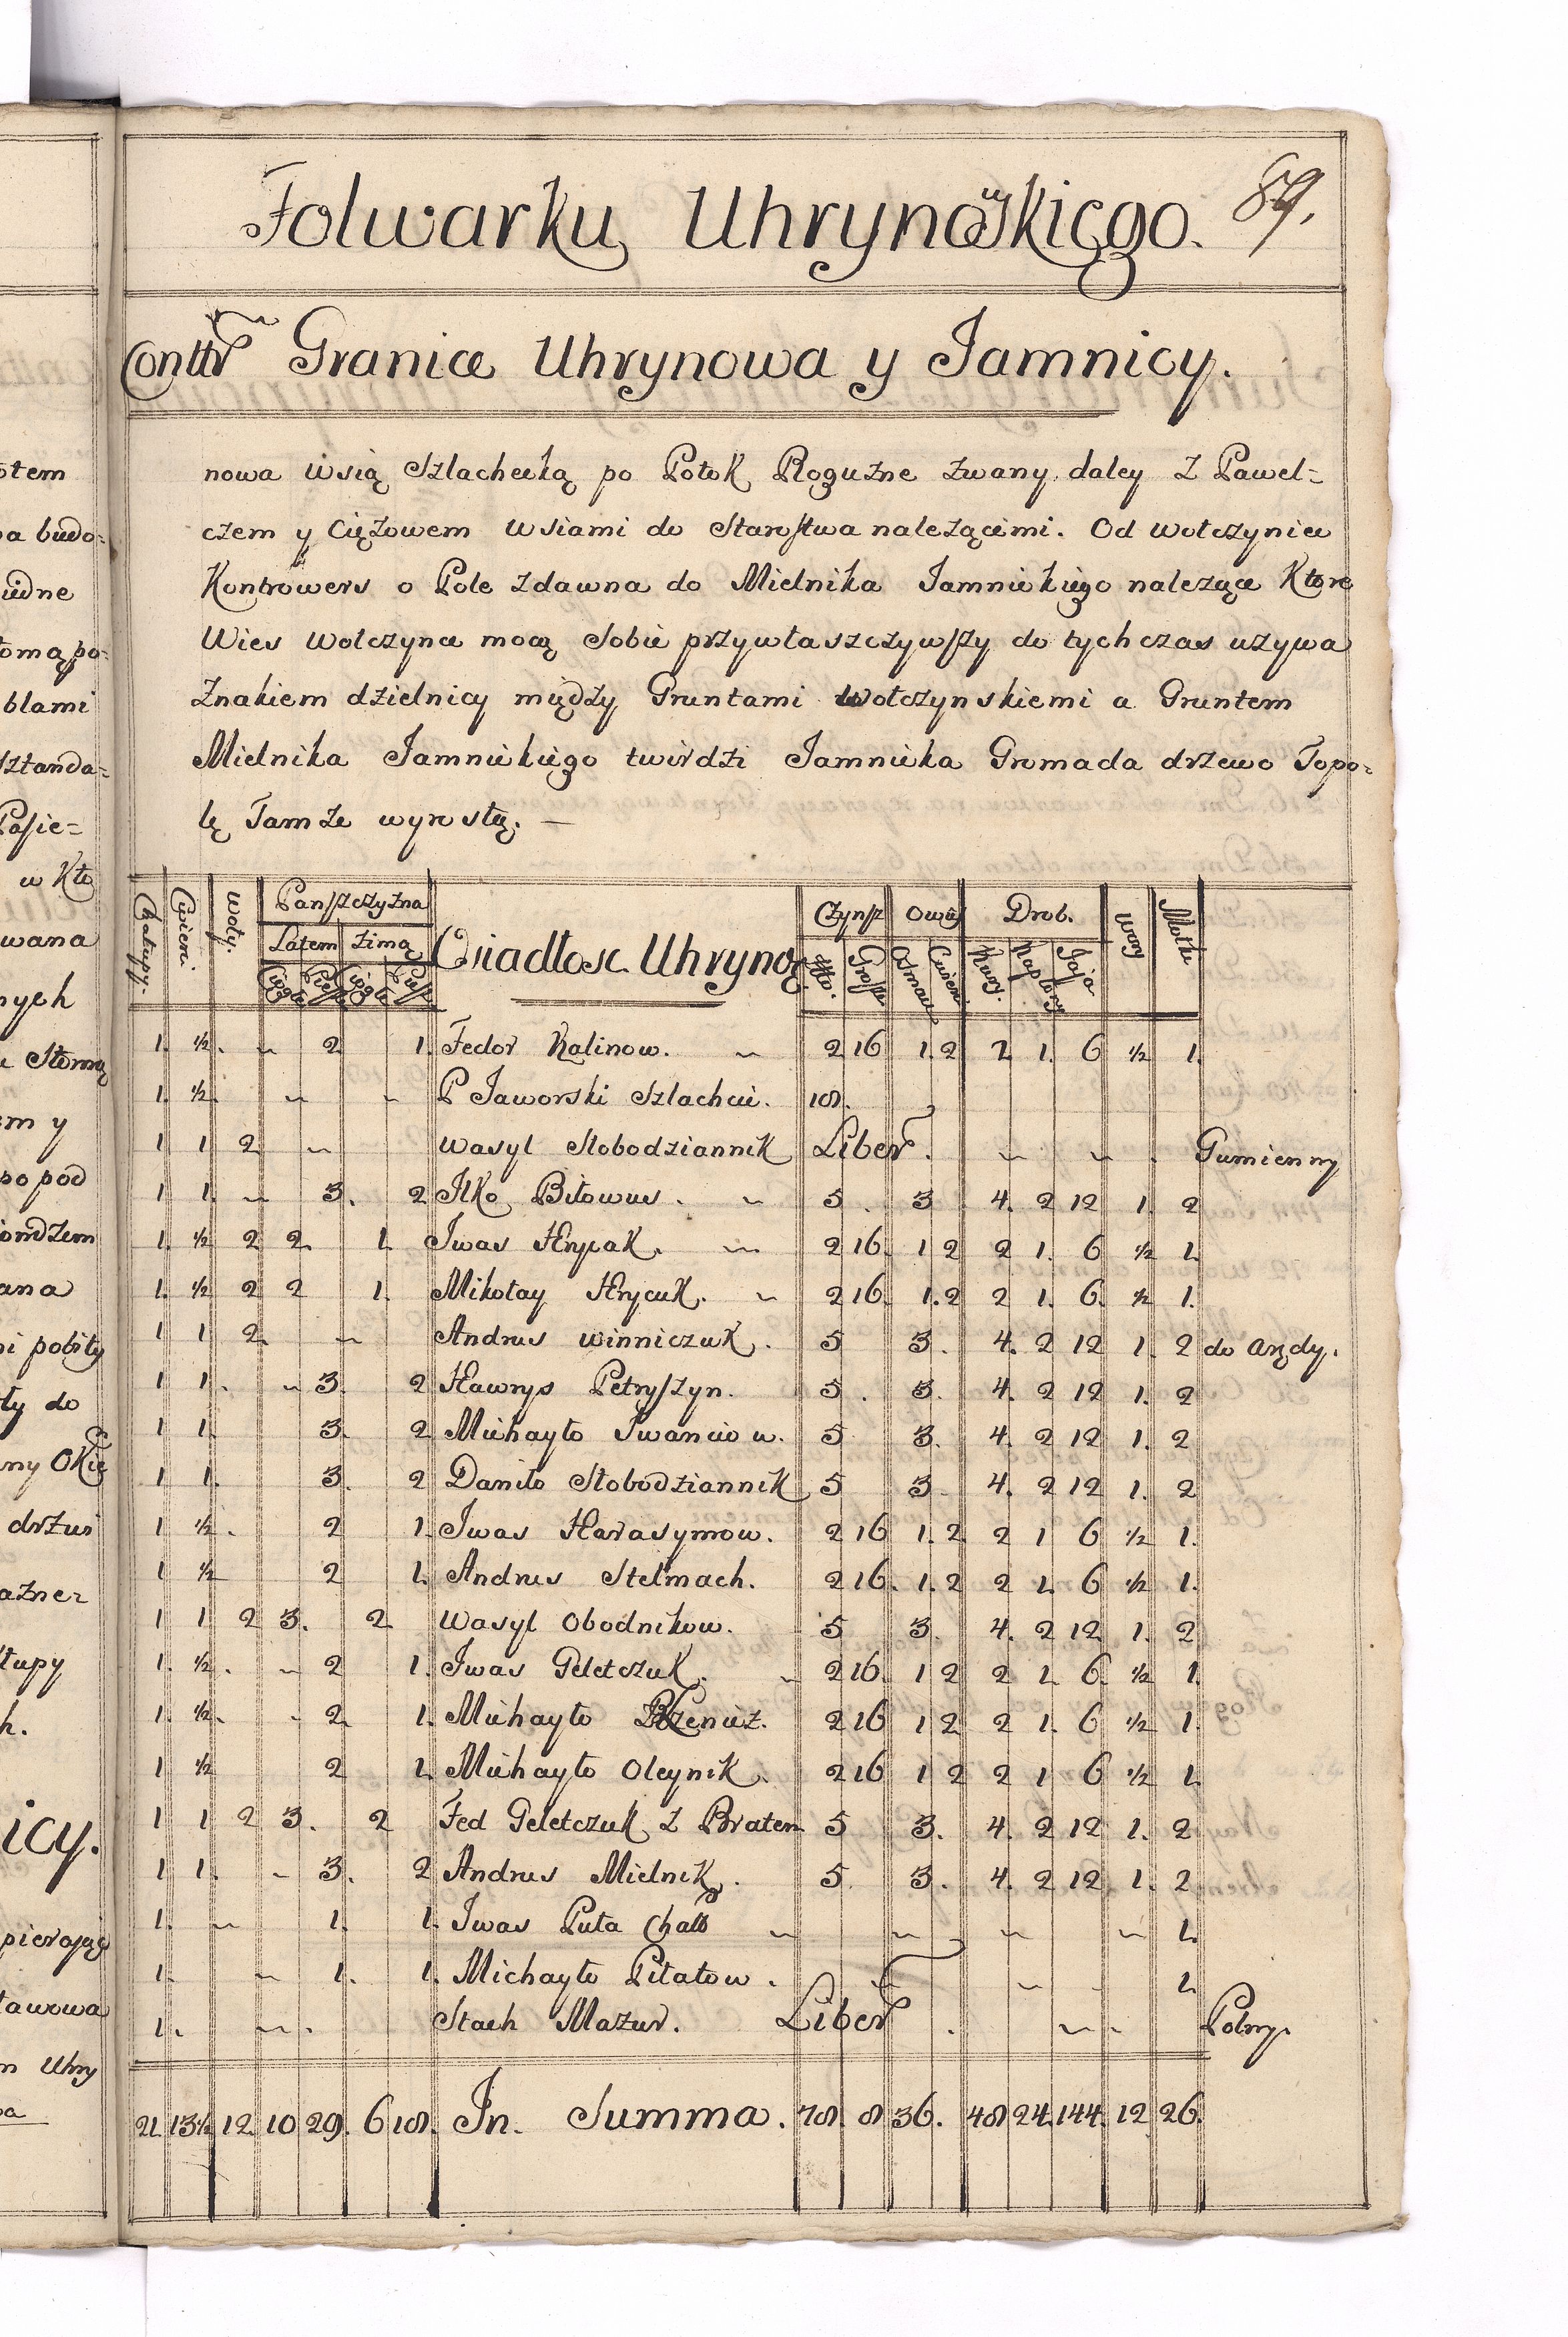 Folwarku Uhrynowskiego. 89.
Conttr Granice Uhrynowa y Jamnicy.
nowa wsią Szlachecką po Potok Roguzne zwany, daley z Pawel=
czem y Ciężowem wsiami do Starostwa należącemi. Od Wołczyniec
Kontrowers o Pole zdawna do Mielnika Jamnickiego nalezące Ktore
Wies Wołczynce mocą Sobie przywłaszczywszy do tych czas uzywa
Znakiem dzielnicy między Gruntami Wołczynskiemi a Gruntem
Mielnika Jamnickiego twirdzi Jamnicka Gromada drzewo Topo=
lę Tamze wyrostą. —
Chałupy. Cwierci. Woły. Panszczyzna Osiadłosc Uhryno Czynsz Owies Drob. Motki
Latem Zimą
Ciągła Piesz Ciągła Piesz Złto. Grosze Osmaczi Cwierci Kury. Kapłony Jaja
1. ½. ~ 2 1. Fedor Kalinow. ~ 2 16 1. 2 2 1. 6 ½ 1.
1. ½. ~ ~ P Jaworski Szlachcic. 18.
1 1 2 ~ Wasyl Słobodziannik Liber. ~ ~ . Gumienny
1 1. ~ 3. 2 Ilko Biłowus. ~ 5. 3 4. 2 12 1. 2
1. ½ 2 2. 1. Iwas Hrycak. ~ 2 16. 1 2 2 1. 6 ½ 1.
1. ½ 2 2 1. Mikołay Hrycuk. ~ 2 16. 1. 2 2 1. 6. ½ 1.
1 1 2. ~ Andrus Winniczuk. 5 3. 4. 2 12 1. 2 do Arędy.
1 1. ~ 3. 2 Hawrys Petryszyn. 5. 3. 4. 2 12 1. 2
1 1. 3. 2 Michayło Iwanciow. 5 3. 4. 2 12 1. 2
1 1. 3. 2 Daniło Słobodziannik 5 3 4. 2 12 1. 2
1 ½. 2 1. Iwas Harasymow. 2 16 1. 2 2 1 6 ½ 1.
1 ½ 2 1. Andrus Stelmach. 2 16. 1. 2 2 1. 6 ½ 1.
1 1 2 3. 2 Wasyl Obodnikow. 5 3. 4. 2 12 1. 2
1. ½. ~ 2 1. Iwas Geletczuk. ~ 2 16. 1 2 2 1. 6. ½ 1.
1. ½. - 2. 1. Michayło 2 16 1 2 2 1. 6 ½ 1.
1 ½ 2 1. Michayło Oleynik. 2 16 1 2 2 1 6 ½ 1.
1 1 2 3. 2 Fed Geletczuk z Bratem 5 3. 4. 2 12 1. 2
1 1. - 3. 2 Andrus Mielnik. 5. 3. 4. 2 12 1. 2
1. ~ 1. 1. Iwas Puta Chałb ~ ~ ~ ~ 1.
1. ~ 1. 1. Michayło Pitatow. ~ ~ 1.
1. ~. Stach Mazur. Liber . ~. Polny.
21. 13½. 12. 10 29. 6 18. In. Summa. 78. 8 36. 48 24. 144. 12 26.
otem
pa budo=
idne
tomą po=
blami
sztanda=
Posie=
w Kto
wana
nych
Słomą
em y
so pod
ana
ni pobity
ty do
drzwi
ażne z
tupy
h.
icy.
m Uhry